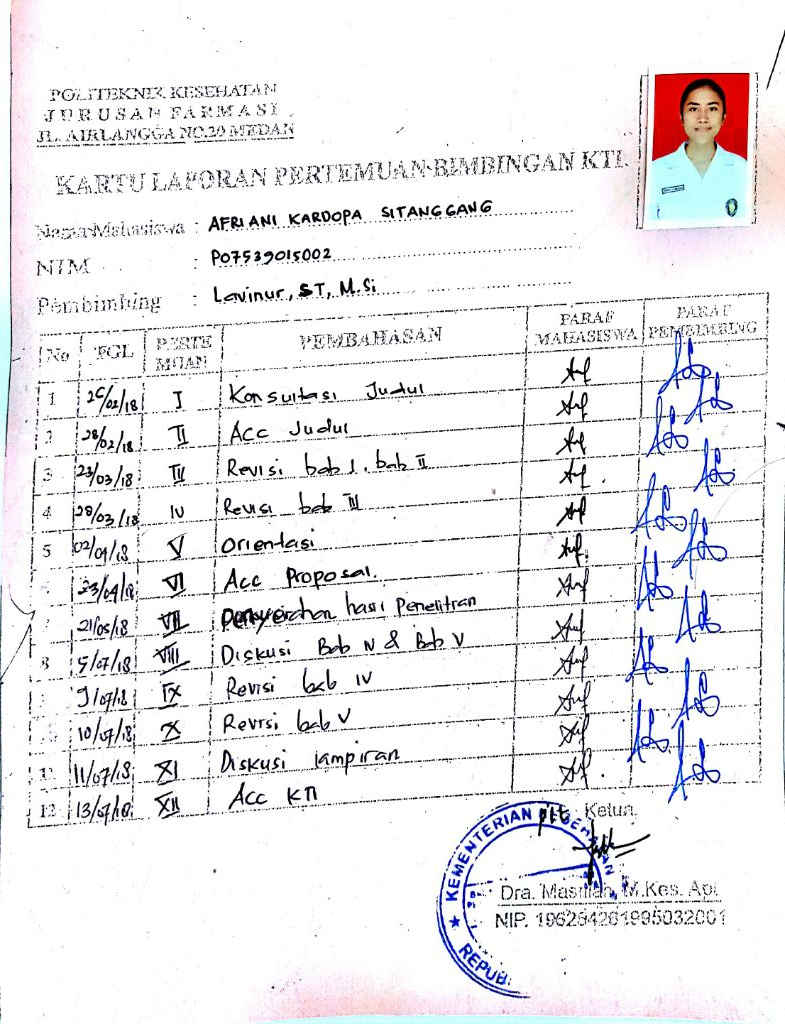 POLITEKNIK KESEHATAN
JURUSAN FARMASI
JL. AIRLANGGA NO.20 MEDAN
KARTU LAPORAN PERTEMUAN BIMBINGAN KTI
Nama Mahasiswa : AFRIANI KARDOPA SITANGGANG
NIM : P07539015002
Pembimbing : Lavinur, ST, M.Si
No TGL PERTEMUAN PEMBAHASAN PARAF MAHASISWA PARAF PEMBIMBING
1 /02/18 I Konsultasi Judul
2 28/02/18 II Acc Judul
3 23/03/18 III Revisi bab I, bab II
4 28/03/18 IV Revisi bab III
5 02/04/18 V Orientasi
23/04/18 VI Acc Proposal.
7 21/05/18 VII Penyerahan hasil Penelitian
8 5/07/18 VIII Diskusi Bab IV & Bab V
9/07/18 IX Revisi bab IV
10/07/18 X Revisi bab V
11 11/07/18 XI Diskusi lampiran
12 13/07/18 XII Acc KTI
plt Ketua,
KEMENTERIAN KESEHATAN
REPUB
Dra. Masniah, M.Kes. Apt
NIP. 196204281995032001